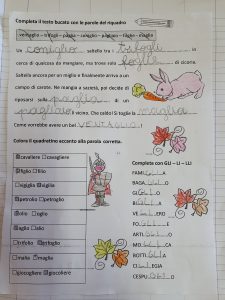 Completa il testo bucato con le parole del riquadro
ventaglio – trifogli – paglia – coniglio – pagliaio – foglie – maglia
Un coniglio saltella tra i trifogli in
cerca di qualcosa da mangiare, ma trova solo foglie di cicoria.
Saltella ancora per un miglio e finalmente arriva a un
campo di carote. Ne mangia a sazietà, poi decide di
riposarsi sulla paglia di un
pagliaio lì vicino. Che caldo! Si toglie la maglia
Come vorrebbe avere un bel VENTAGLIO!
Colora il quadratino accanto alla parola corretta.
cavaliere cavagliere
figlio filio
vigiglia vigilia
petrolio petroglio
olio oglio
aglio alio
trifolio trifoglio
malia maglia
giocogliere giocoliere
Completa con GLI – LI – LLI
FAMIGLIA
BAGAGLIO
GIGLIO
BIGLIA
VELIERO
FOGLIE
ARTIGLIO
MOLLICA
BOTTIGLIA
CILIEGIA
CESPUGLIO